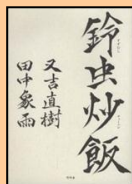 鈴虫炒飯
又吉直樹
田中象雨